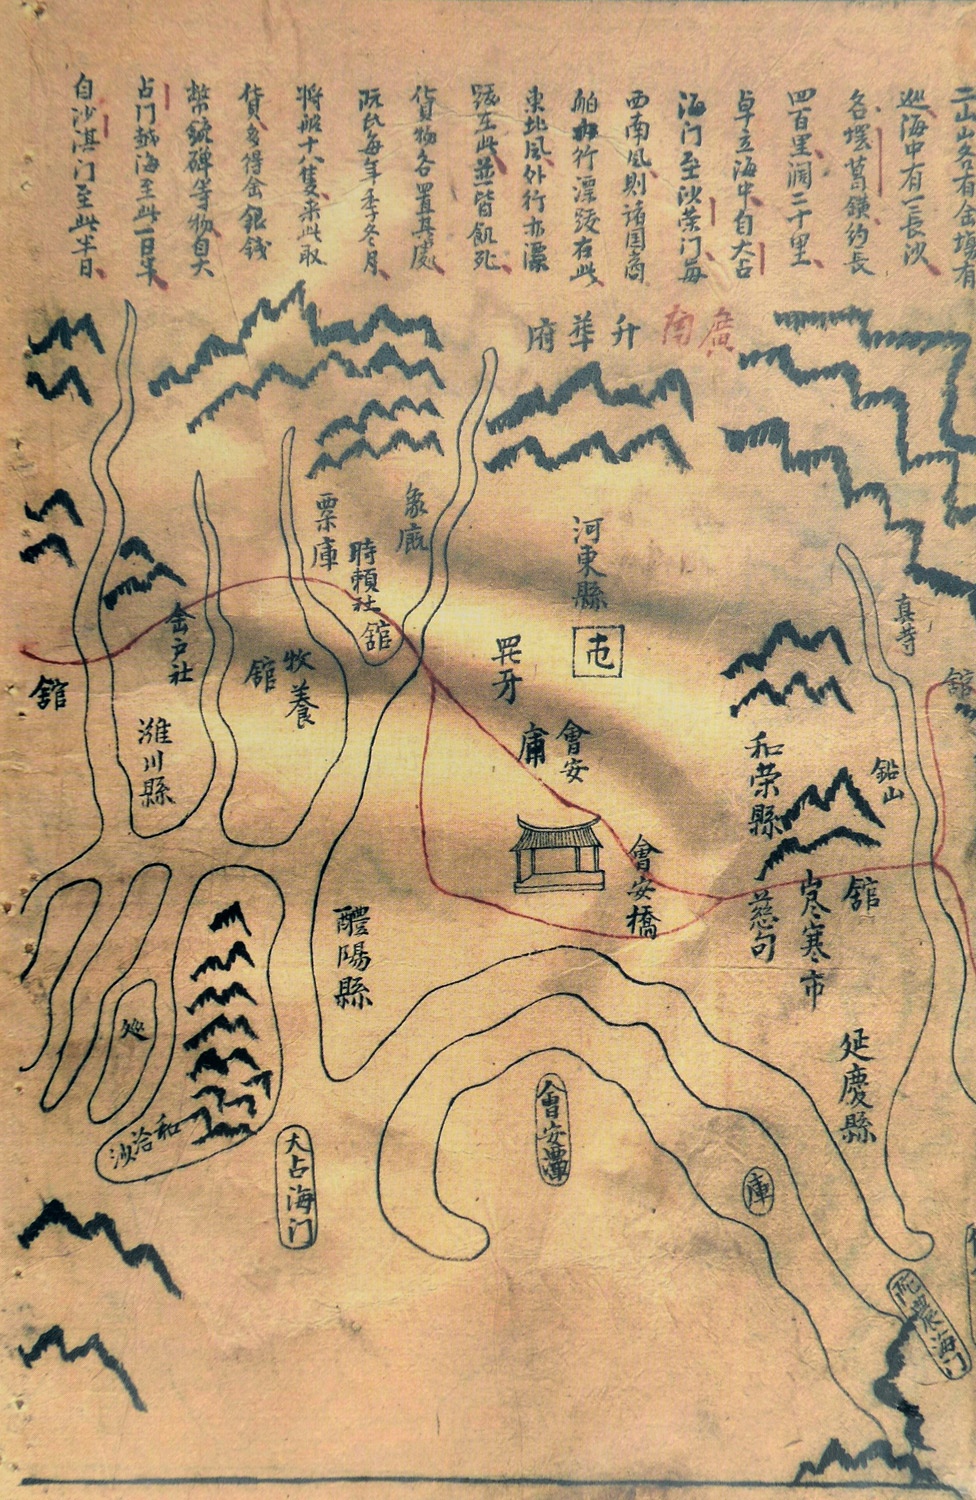 二山山各有金場有
海中有一長沙
各
四百里濶二十里
卓立海中自大占
海门至沙荣门每
西南風則諸国商
舶行漂跤在此
東北風外行亦漂
跤在此並皆飢死
貨物各置其處
阮氏每年季冬月
將船十八隻来此取
貨多得金銀錢
幣銃碑等物自大
占门越海至此一日半
自沙淇门至此半日
廣南
升華府
河東縣
屯
象廄
粟庫
時頼社
舘
金戸社
牧養
舘
舘
濰川縣
會安
庯
會安橋
和荣縣
鉛山
真寺
舘
舘
慈句
寒市
延慶縣
醴陽縣
和洽沙
大占海门
會安潭
庫
陀㶞海门